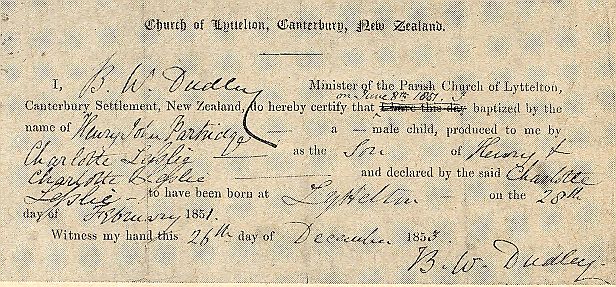 Church of Lyttelton, Canterbury, New Zealand.
I, B. W. Dudley Minister of the Parish Church of Lyttelton,
on June 8th 1851. I
Canterbury Settlement, New Zealand, do hereby certify that I have this day baptized by the
name of Henry John Partridge — a — male child, produced to me by
Charlotte Leslie — as the Son of Henry &
Charlotte Leslie — and declared by the said Charlotte
Leslie — to have been born at Lyttelton — on the 28th
day of February 1851.
Witness my hand this 26th day of December 1853.
B. W. Dudley.